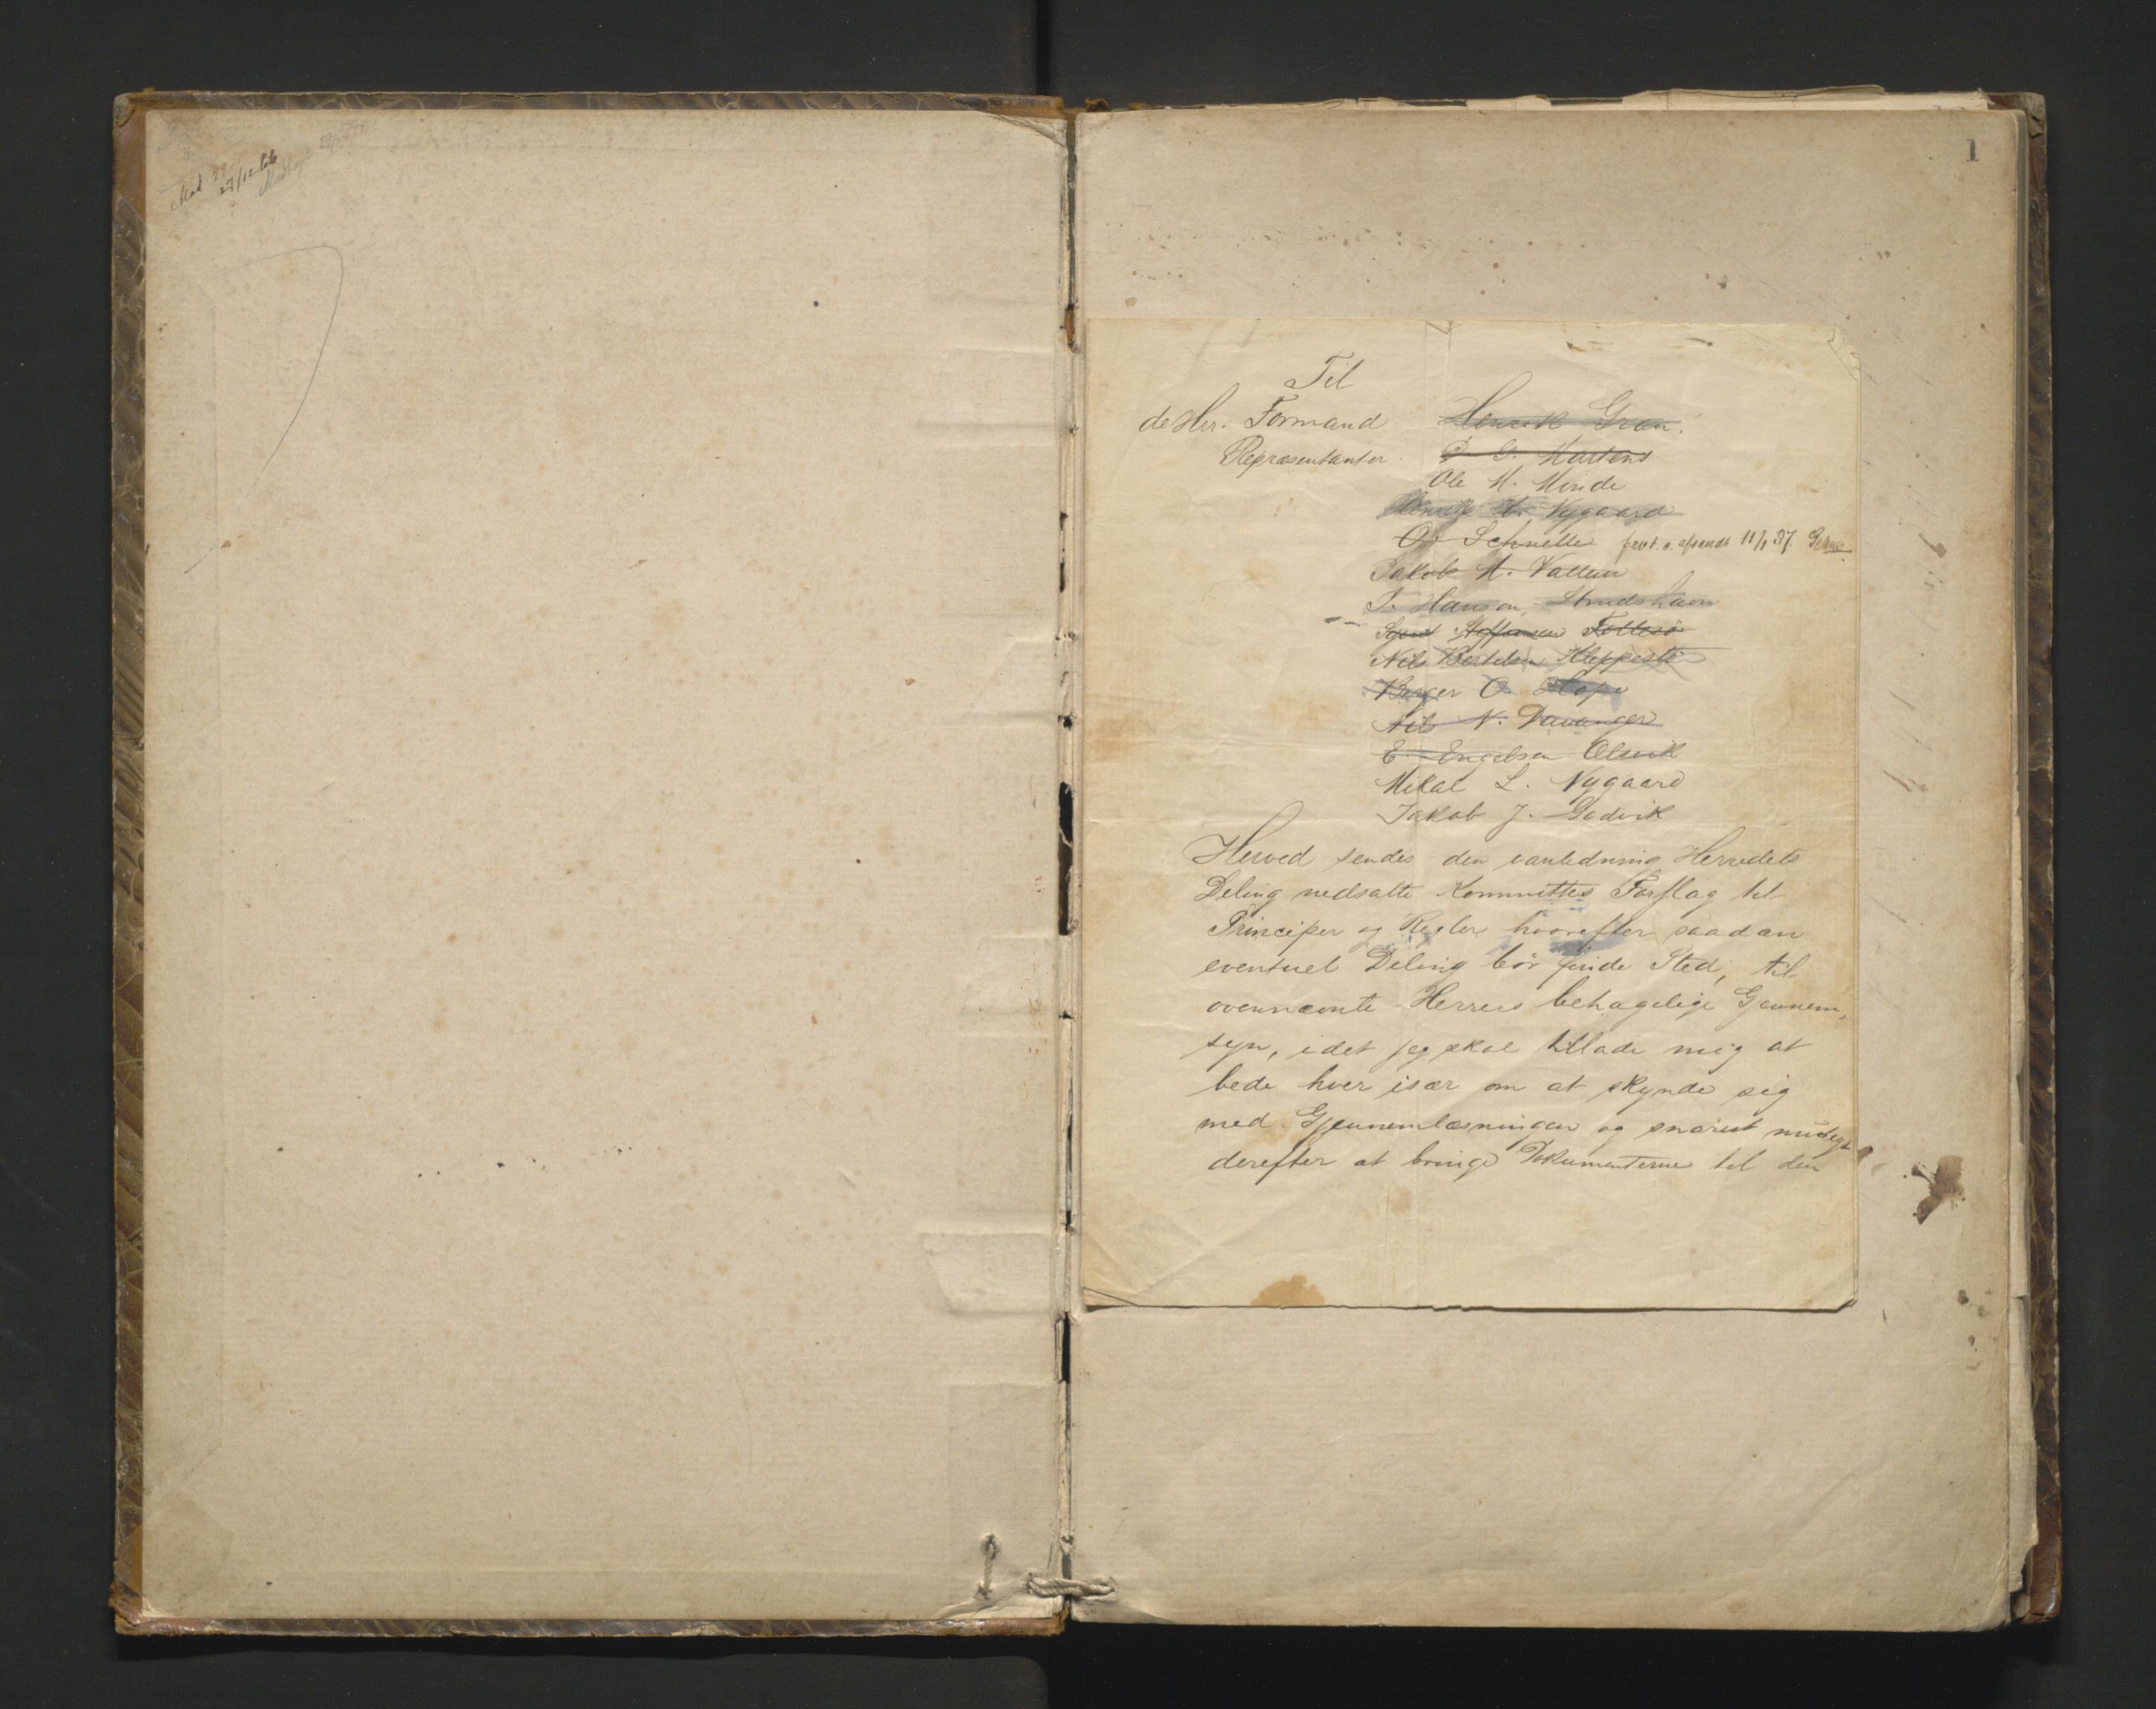 1
Til
de Hrr. Formand Henrik Gran.
Repræsentanter. P. G. Martens
Ole M. Minde
H. Nygaard
O. Schnelle 11/1 87
Jakob M. Vallem
P. Hansen, Strudshavn
Steffensen Follesö
Nils Bertelsen Kleppestö
Berger O. Hope
Nils N. Davanger
E. Engelsen Olsvik
Mikal L. Nygaard
Jakob J. Godvik
Herved sendes den ianledning Herredets
Deling nedsatte Kommittes Forslag til
Principer og Regler hvorefter saadan
eventuel Deling bör finde Sted, til
ovennævnte Herrers behagelige Gjennem,
syn, idet jeg skal tillade mig at
bede hver især om at skynde sig
med Gjennemlæsningen og snarest muligt
derefter at bringe Dokumenterne til den